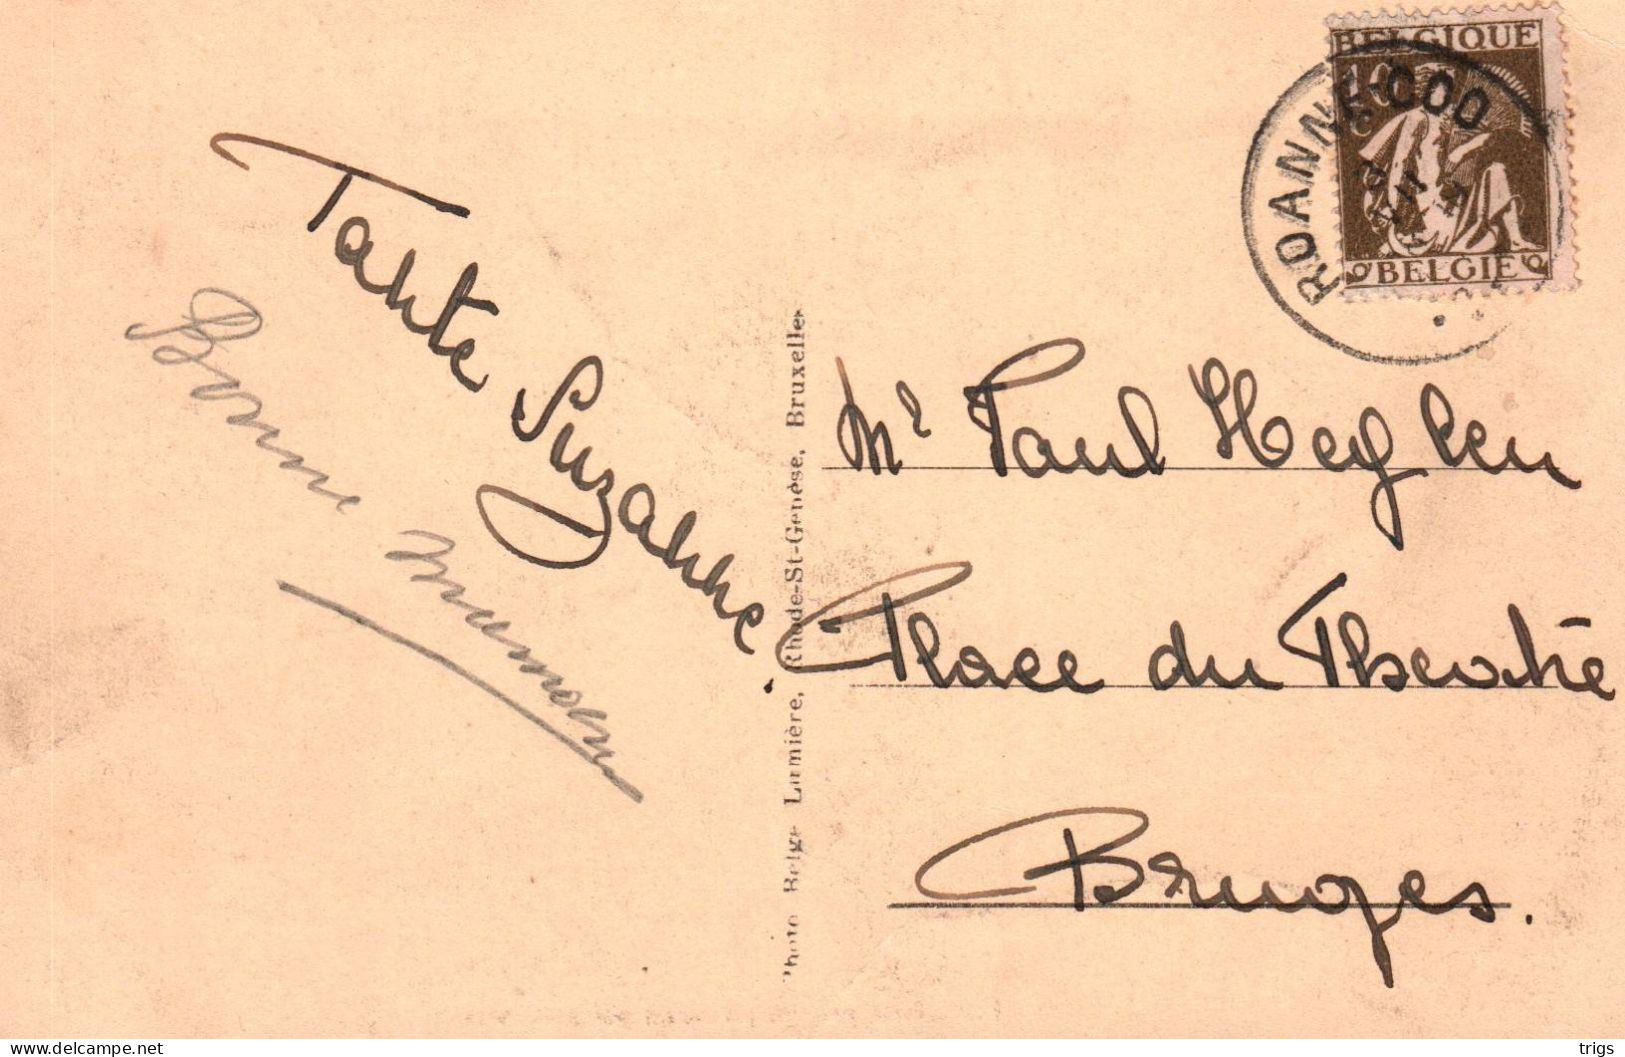 BELGIQUE
10
C
ROANNE-COO
BELGIE
Tante Suzanne.
Bonne
Mr Paul Heylen
Place du Theatre
Bruges.
Photo Belge Lumière, Rhode-St-Genèse, Bruxelles
trigs